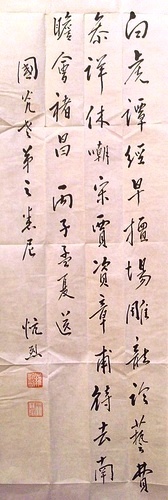 白虎譚經早擅場雕龍論藝費
參詳休嘲宋賈資章甫待去南
瞻會褚昌 丙子孟夏送
國光老弟之悉尼
忼烈